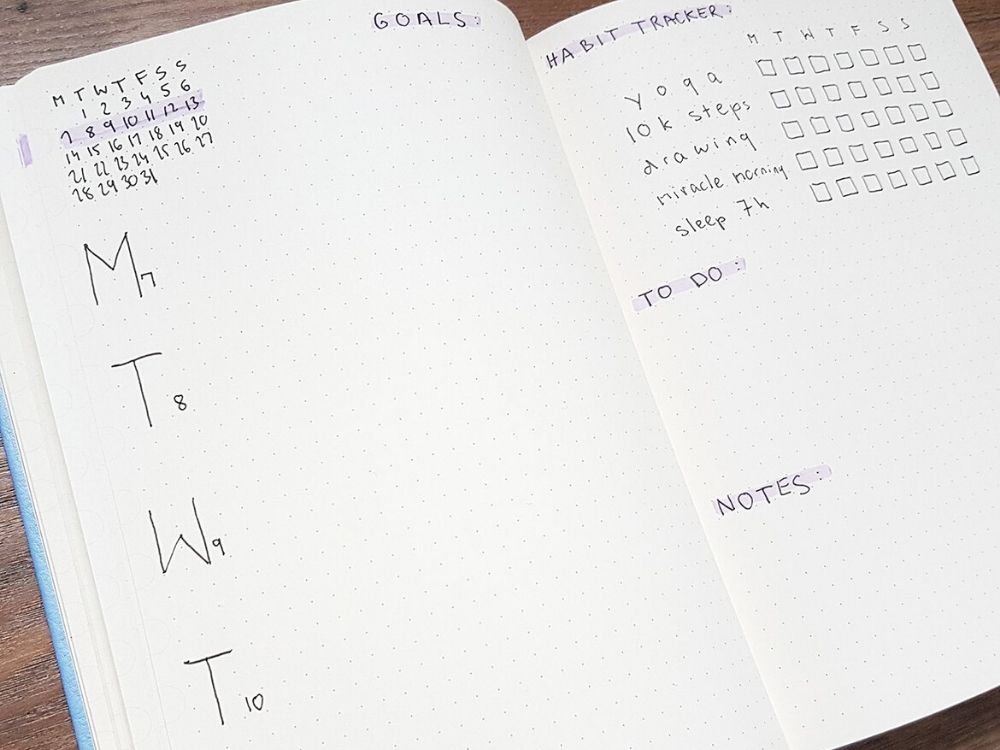 GOALS:
M T W T F S S
1 2 3 4 5 6
7 8 9 10 11 12 13
14 15 16 17 18 19 20
21 22 23 24 25 26 27
28 29 30 31
M 7
T 8
W 9
T 10
HABIT TRACKER:
M T W T F S S
yoga
10k steps
drawing
miracle morning
sleep 7h
TO DO:
NOTES: